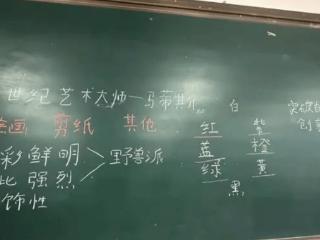 世纪艺术大师—马蒂斯 白
绘画 剪纸 其他 红 紫
彩鲜明 蓝 橙
比强烈 >野兽派 绿 黄
饰性 黑
创